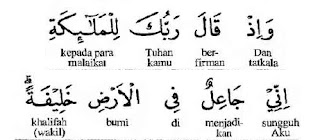 وَاِذْ قَالَ رَبُّكَ لِلْمَلٰۤىِٕكَةِ
kepada para Tuhan ber- Dan
malaikat kamu firman tatkala
اِنِّيْ جَاعِلٌ فِى الْاَرْضِ خَلِيْفَةً ۗ
khalifah bumi di menjadi- sungguh
(wakil) kan Aku